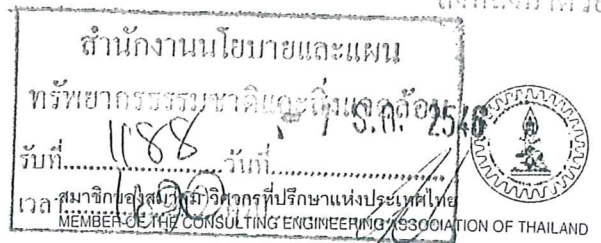 สำนักงานนโยบายและแผน
ทรัพยากรธรรมชาติและสิ่งแวดล้อม
รับที่ 1188 วันที่ ธ.ค. 2546
เวลา
สมาชิกของสมาคมวิศวกรที่ปรึกษาแห่งประเทศไทย
MEMBER OF THE CONSULTING ENGINEERING ASSOCIATION OF THAILAND